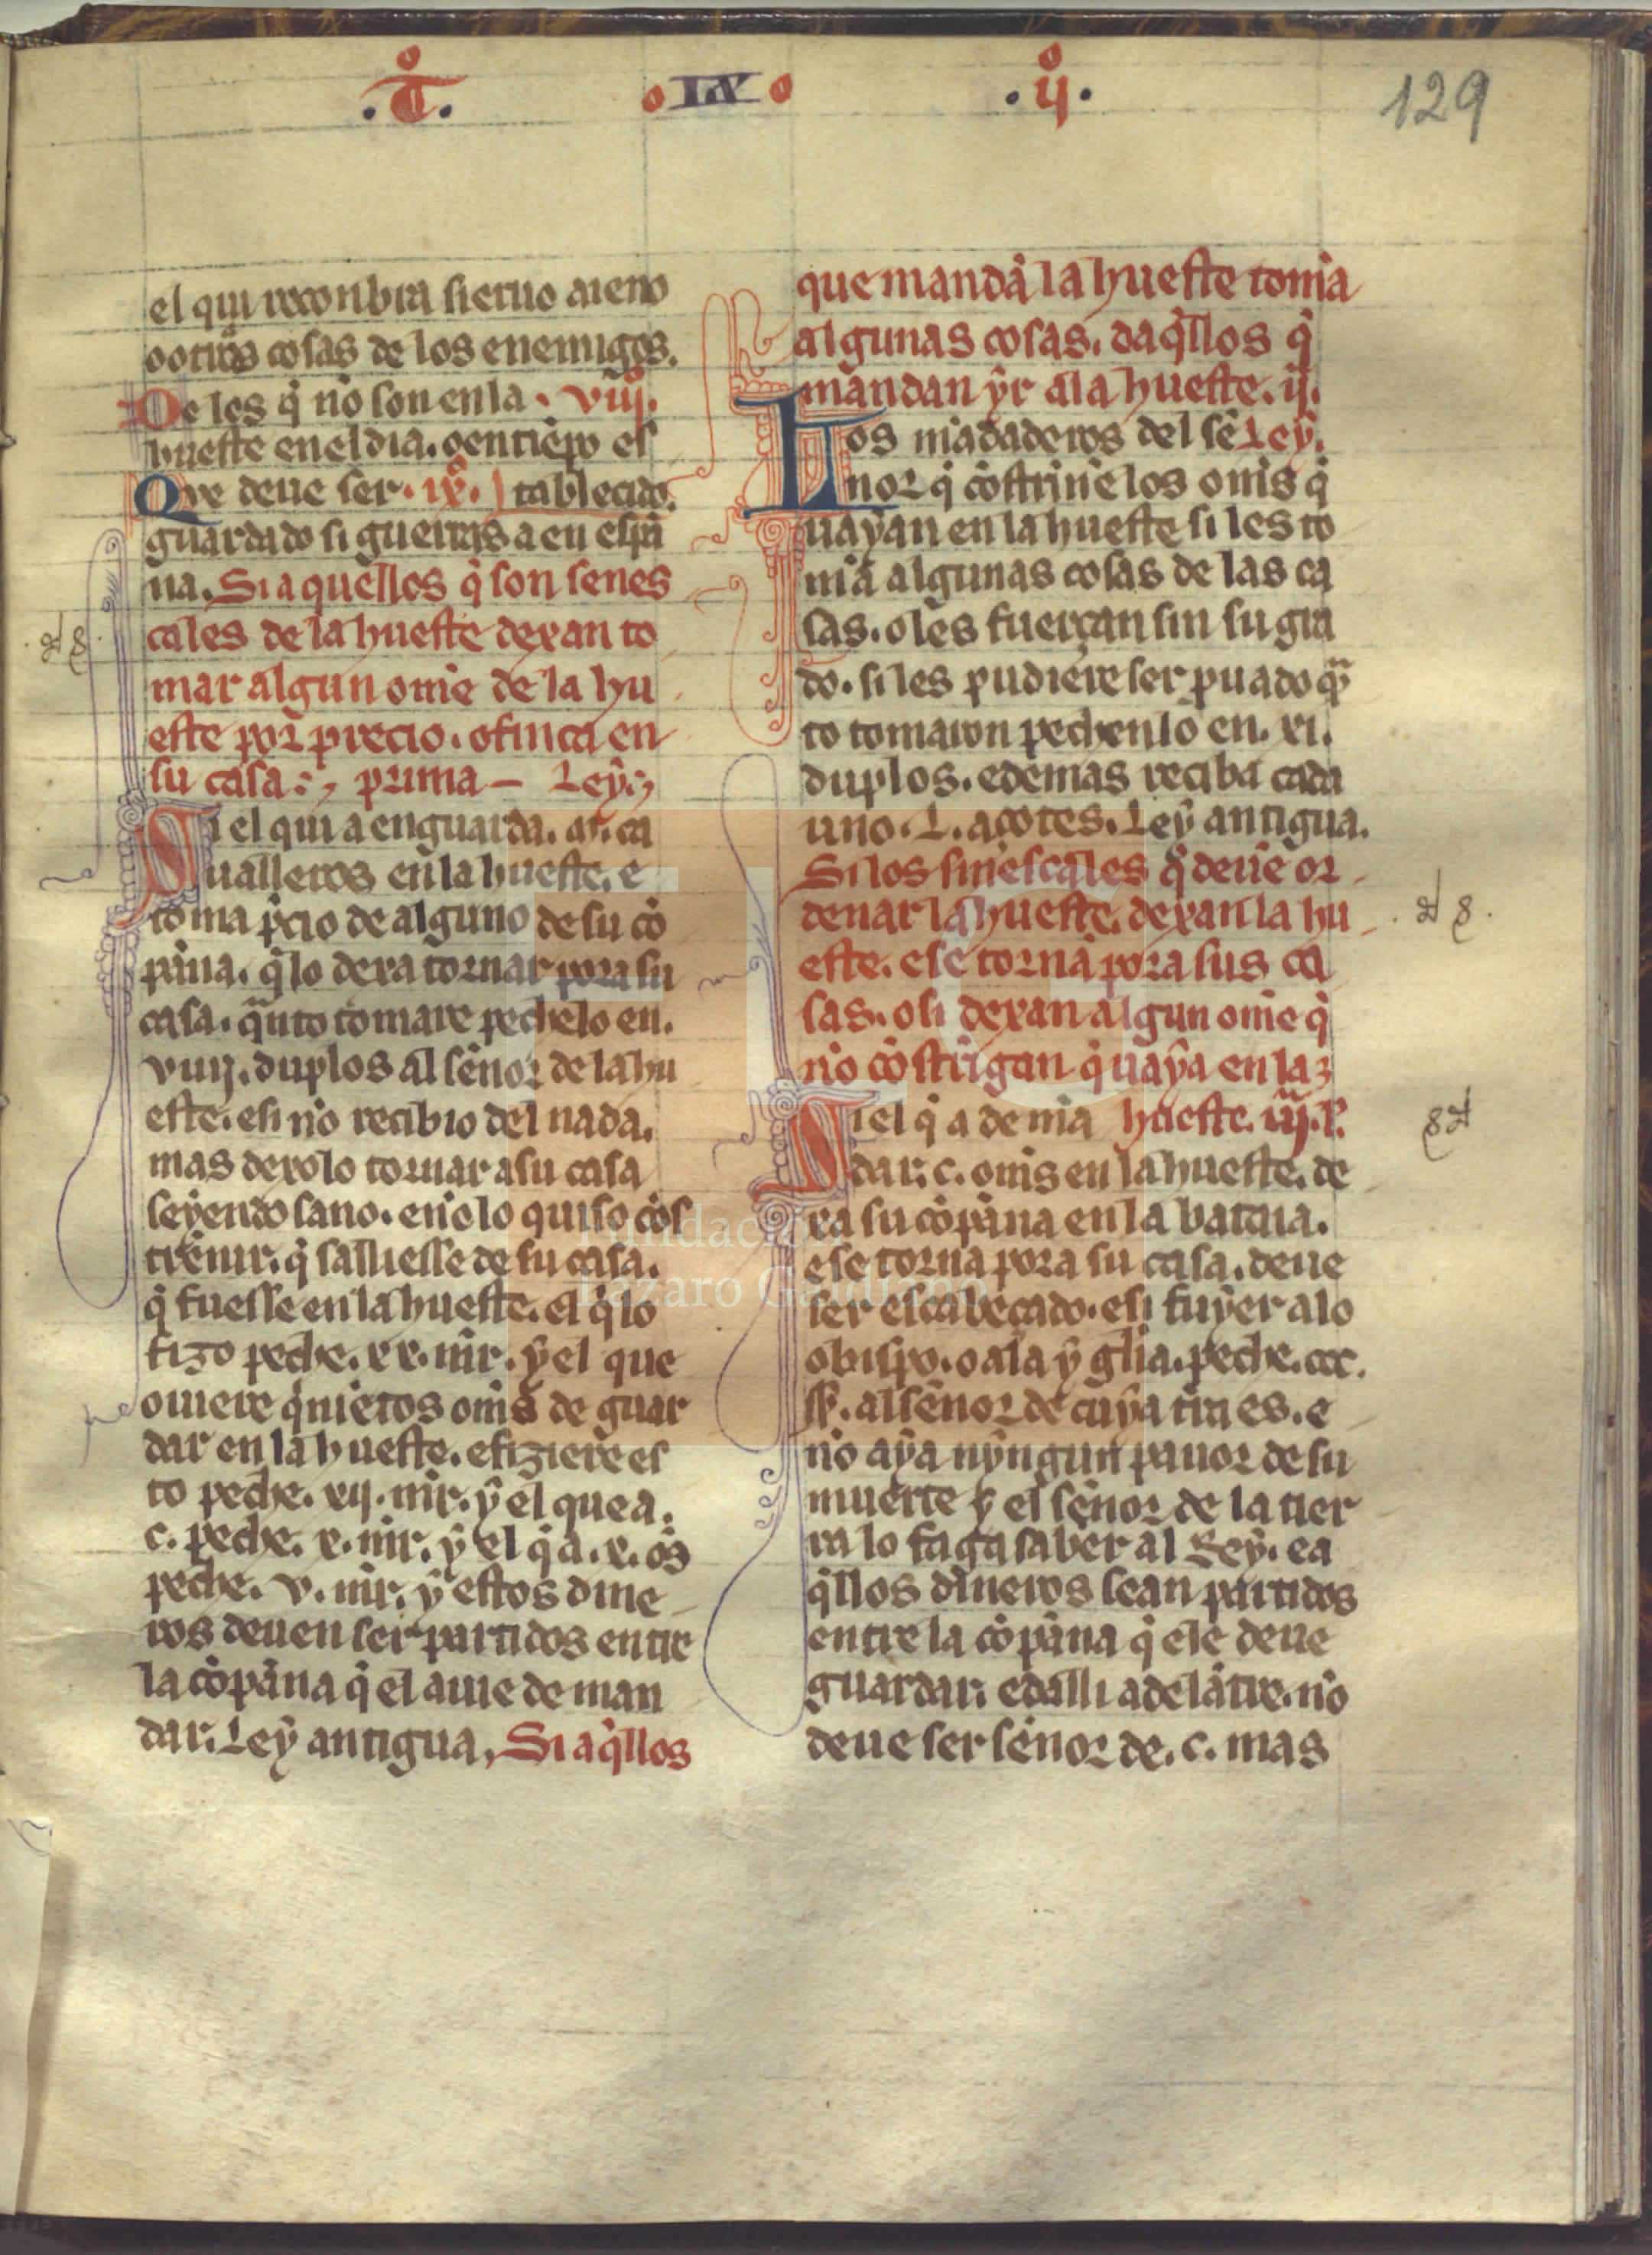 .T. IX .ij. 129
el qui recombra sieruo aieno
o otras cosas de los enemigos.
De los q̇ nõ son en la . viij.
hueste en el dia. o en tiẽpo es
Que deue ser . ix. tablecido.
guardado si guerras a en espa
na. Si aquellos q̇ son senes
cales de la hueste dexan to
mar algun omẽ de la hu
este por precio. o finca en
su casa : prima – Ley:
Si el qui a en guarda. m̃. ca
ualleros en la hueste. e
toma p̃cio de alguno de su cõ
pãna. q̇ lo dexa tornar pora su
casa. q̃nto tomare pechelo en.
viiij. duplos al sẽnor de la hu
este. e si nõ recibio del nada.
mas dexolo tornar a su casa
seyendo sano. e nõ lo quiso cõs
trẽnir. q̇ saliesse de su casa.
q̇ fuesse en la hueste. el q̇ lo
fizo peche. xx. mr̃. ẏ el que
ouiere q̇niẽtos omĩs de guar
dar en la hueste. e fiziere es
to peche. xij. mr̃. ẏ el que a.
c. peche. x. mr̃. ẏ el q̇ a. x. oṡ
peche. v. mr̃. ẏ estos dine
ros deuen ser partidos entre
la cõpãna q̇ el auie de man
dar. Leẏ antigua, Si aq̇llos
que mandã la hueste tomã
algunas cosas. daq̇llos q̇
mandan ẏr a la hueste. ij.
Los mãdaderos del sẽ Leẏ.
nor q̇ cõstrinẽ los omĩs q̇
uaẏan en la hueste si les to
mã algunas cosas de las ca
sas. o les fuerçan sin su gra
do. si les pudiere ser p̃uado q̃
to tomaron pechenlo en. xi.
duplos. e demas reciba cada
uno. L. açotes. Leẏ antigua.
Si los sinescales q̇ deuẽ or
denar la hueste. dexan la hu
este. e se tornã pora sus ca
sas. o si dexan algun omẽ q̇
nõ cõstrĩgan q̇ uaẏa en la
Si el q̇ a de mã hueste. iij. l.
dar. c. omĩs en la hueste. de
xa su cõpãna en la batalla.
e se torna pora su casa. deue
ser escabeçado. e si fuẏer a lo
obispo. o a la ẏgl̃ia. peche. ccc.
sł. al sẽnor de cuẏa tr̃a es. e
nõ aẏa nẏngun pauor de su
muerte ẏ el sẽnor de la tier
ra lo faga saber al Reẏ. e a
q̇llos dineros sean partidos
entre la cõpãna q̇ ele deue
guardar. e dalli adelãtre. nõ
deue ser sẽnor de. c. mas
Fundación
Lázaro Galdiano